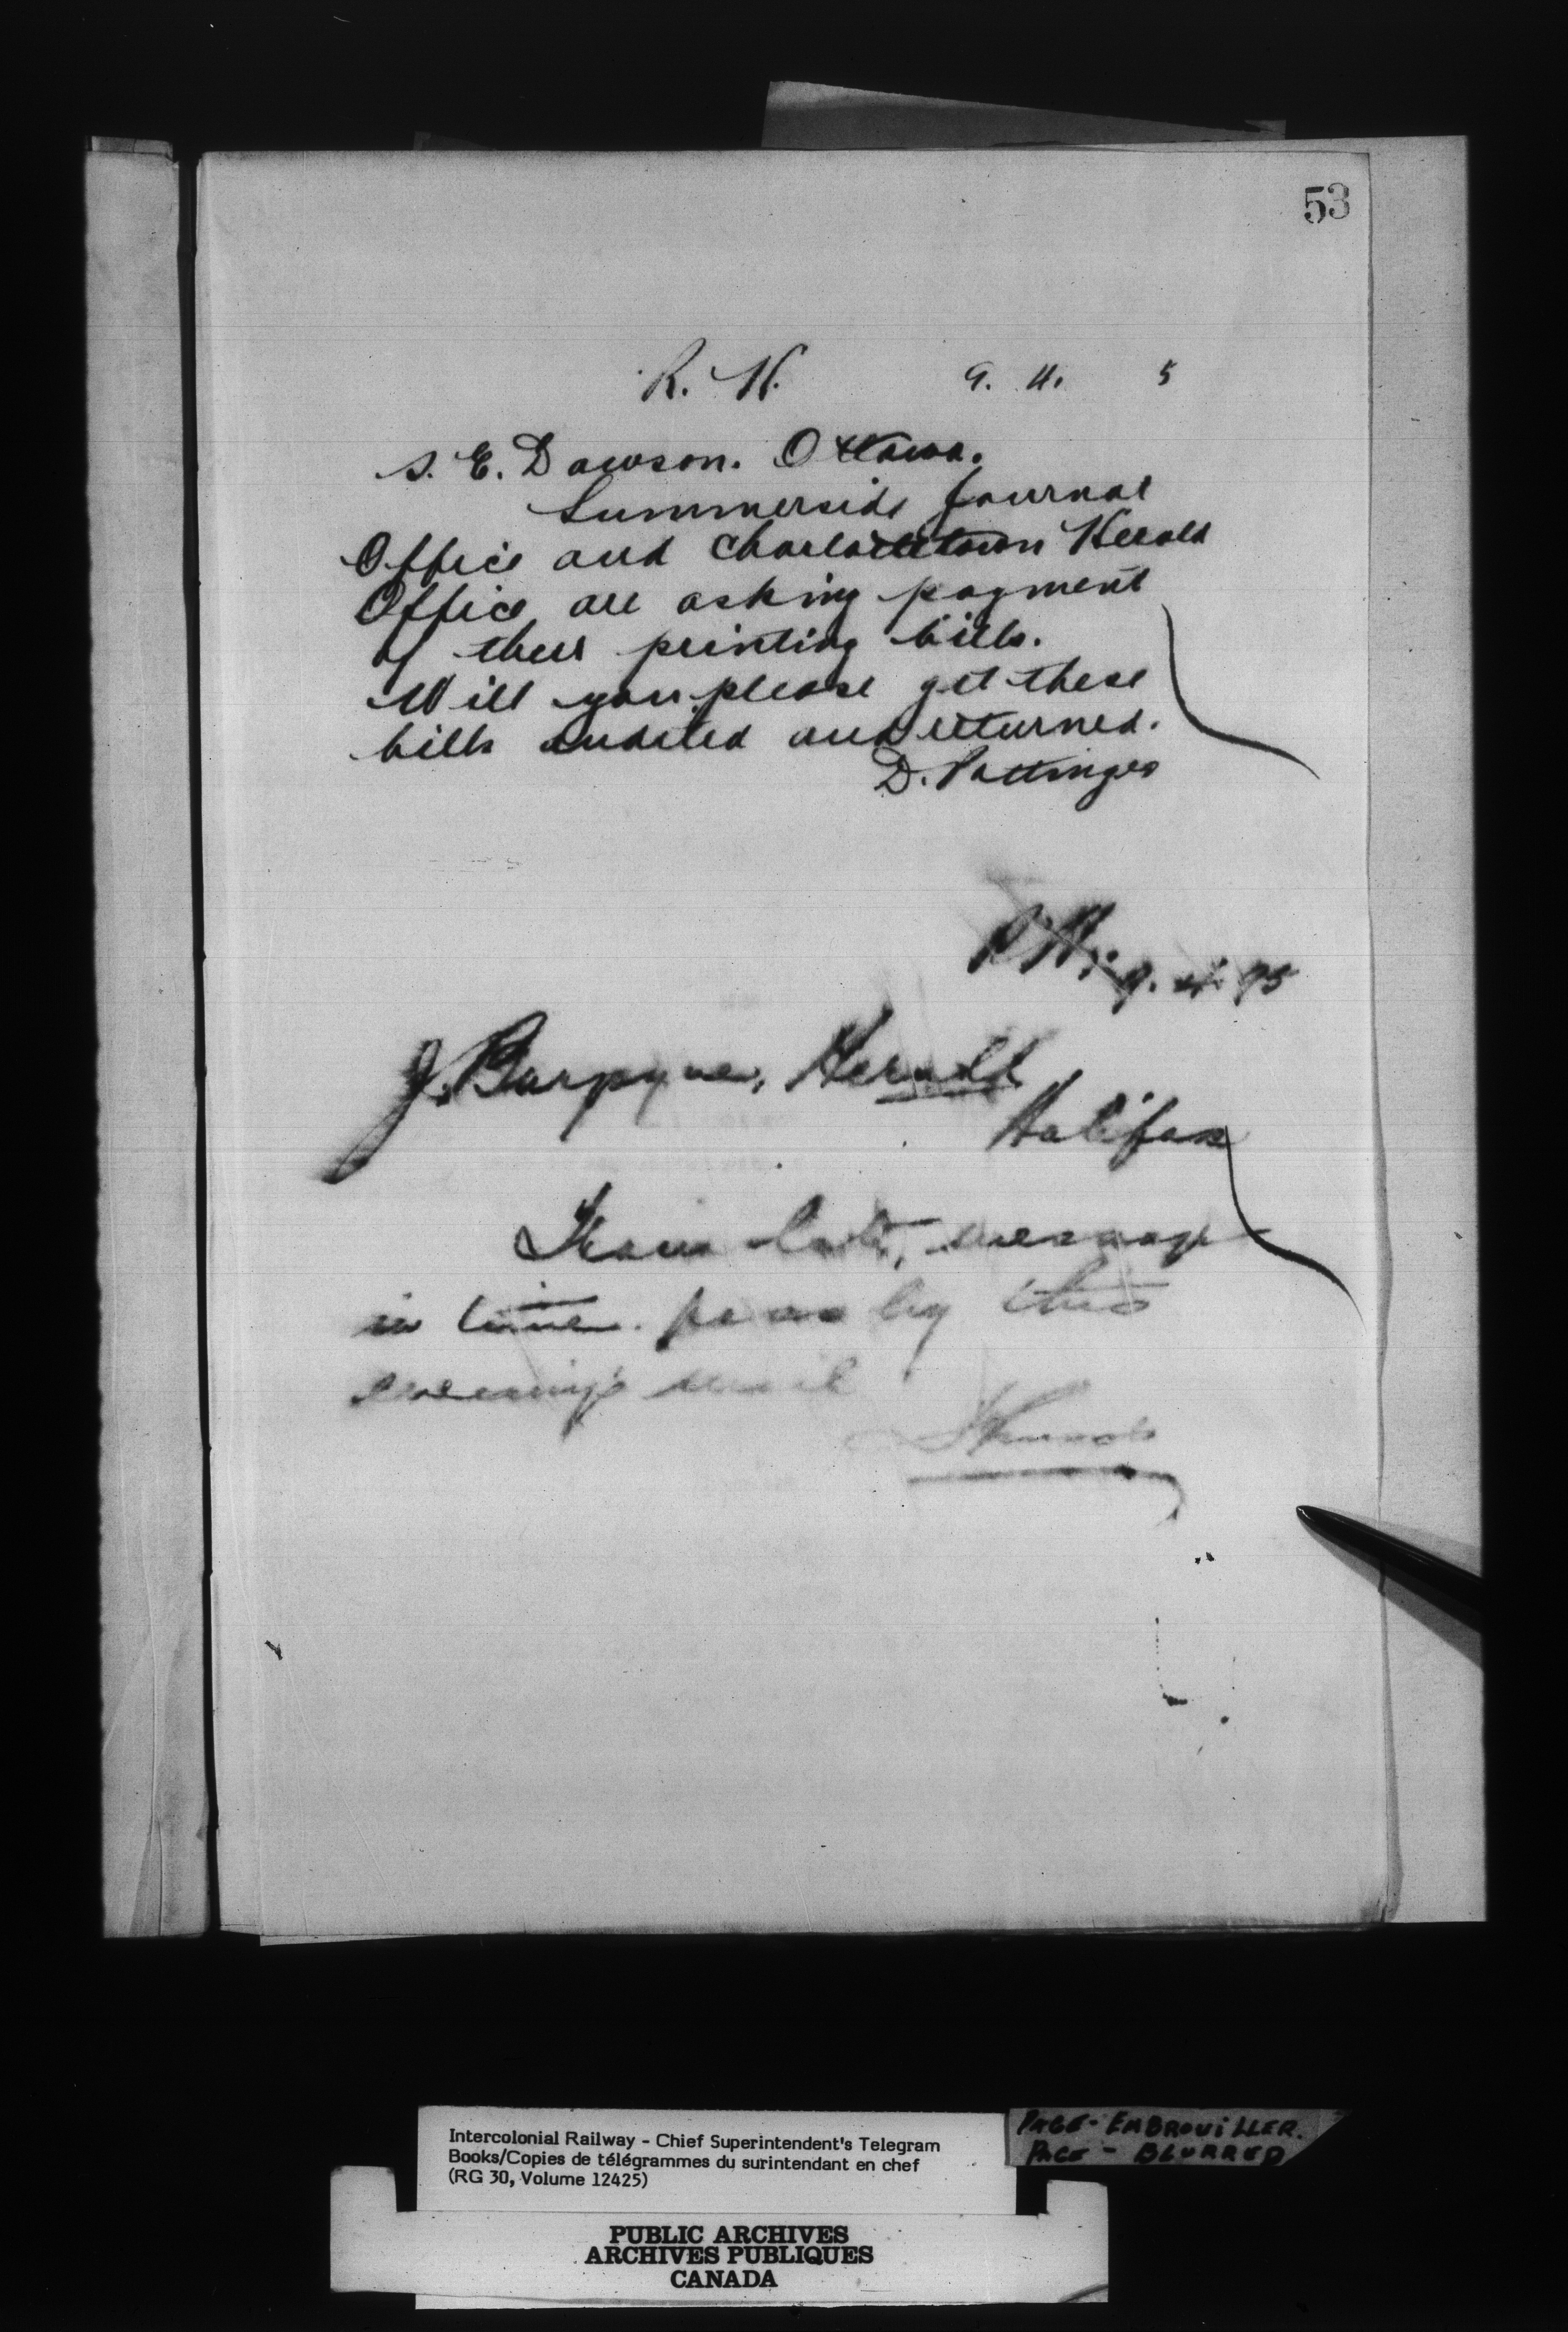 53
R. N. 9. 4. 5
S. E. Dawson. Ottawa.
Summerside Journal
Office and Charlottetown Herald
Office are asking payment
of their printing bills.
Will you please get these
bills audited and returned.
D. Pottinger
9. 4. 95
J. Herald
Halifax
late, message
in time. by this
evening's mail
Intercolonial Railway - Chief Superintendent's Telegram
Books/Copies de télégrammes du surintendant en chef
(RG 30, Volume 12425)
PAGE - EMBROUILLER.
PAGE - BLURRED
PUBLIC ARCHIVES
ARCHIVES PUBLIQUES
CANADA